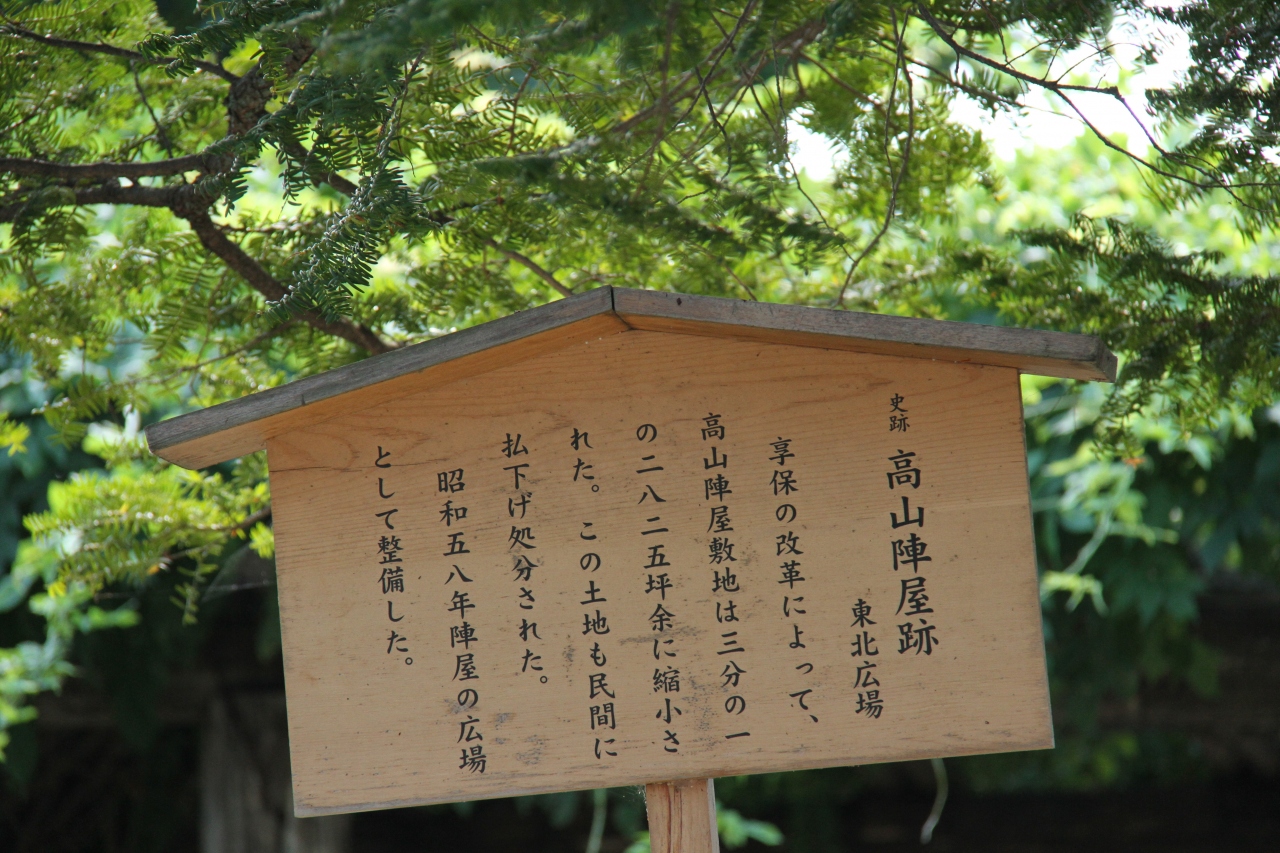 史跡 高山陣屋跡
東北広場
享保の改革によって、
高山陣屋敷地は三分の一
の二八二五坪余に縮小さ
れた。この土地も民間に
払下げ処分された。
昭和五八年陣屋の広場
として整備した。